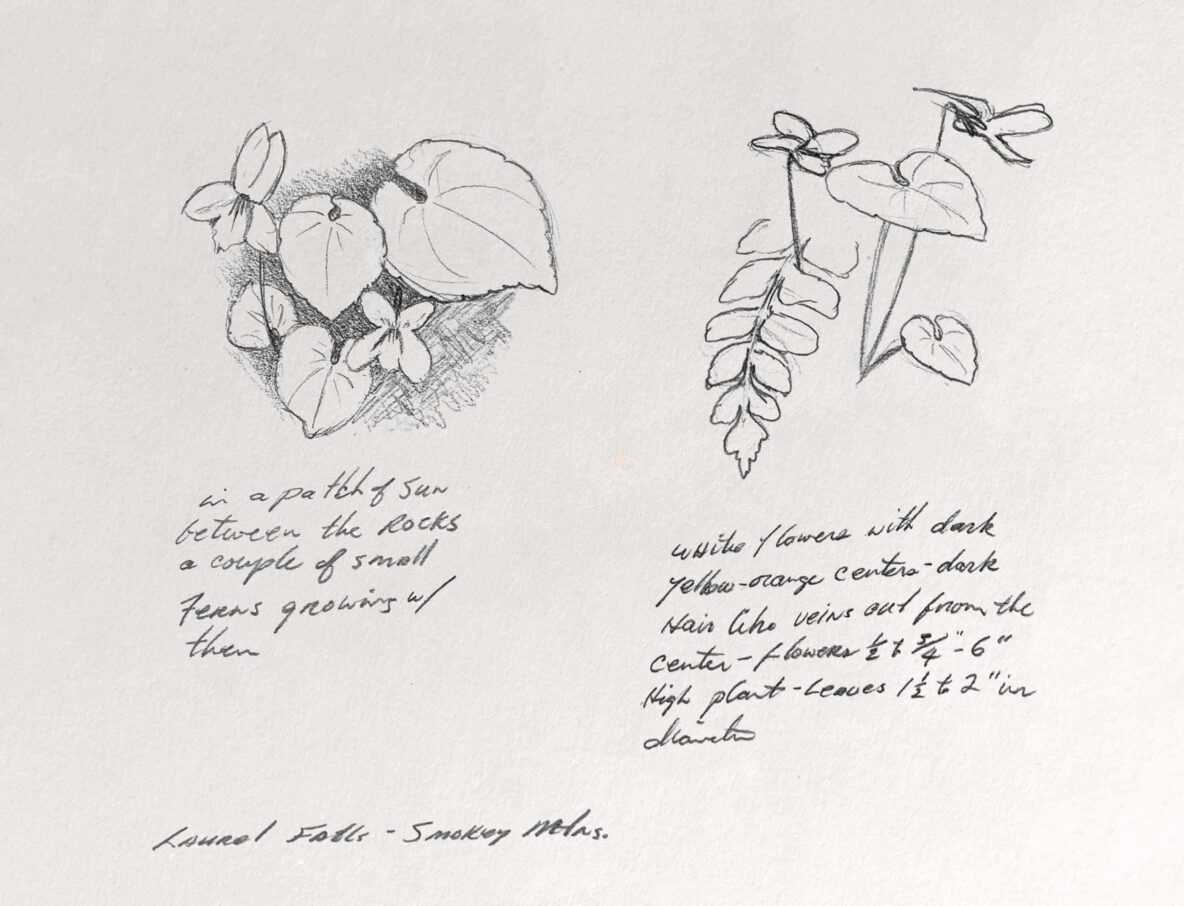 in a patch of sun
between the Rocks
a couple of small
Ferns growing w/
them
white flowers with dark
yellow-orange centers-dark
Hair like veins out from the
center-flowers ½ to 3/4"-6"
High plant-Leaves 1½ to 2" in
diameter
Laurel Falls - Smokey Mtns.